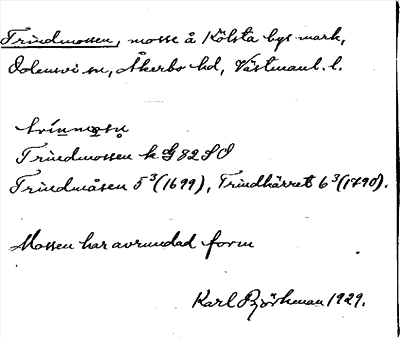 Trindmossen, mosse å Kölsta bys mark,
Odensvi sn, Åkerbo hd, Västmanl. l.
trínmɷsn̥
Trindmossen k G 82 S O
Trindmåsen 5³ (1699), Trindkärret 6³ (1790).
Mossen har avrundad form
Karl Björkman 1929.